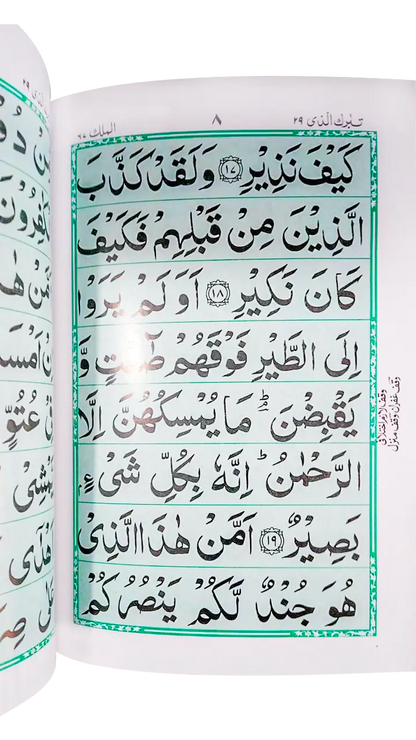 تبٰرك الذی ٢٩
٨
الملك ٦٧
كَيْفَ نَذِيْرِ ﴿١٧﴾ وَلَقَدْ كَذَّبَ
الَّذِيْنَ مِنْ قَبْلِهِمْ فَكَيْفَ
كَانَ نَكِيْرِ ﴿١٨﴾ اَوَلَمْ يَرَوْا
اِلَى الطَّيْرِ فَوْقَهُمْ صٰٓفّٰتٍ وَّ
يَقْبِضْنَ ؔۘ مَا يُمْسِكُهُنَّ اِلَّا
الرَّحْمٰنُ ؕ اِنَّهٗ بِكُلِّ شَىْءٍۭ
بَصِيْرٌ ﴿١٩﴾ اَمَّنْ هٰذَا الَّذِىْ
هُوَ جُنْدٌ لَّكُمْ يَنْصُرُكُمْ